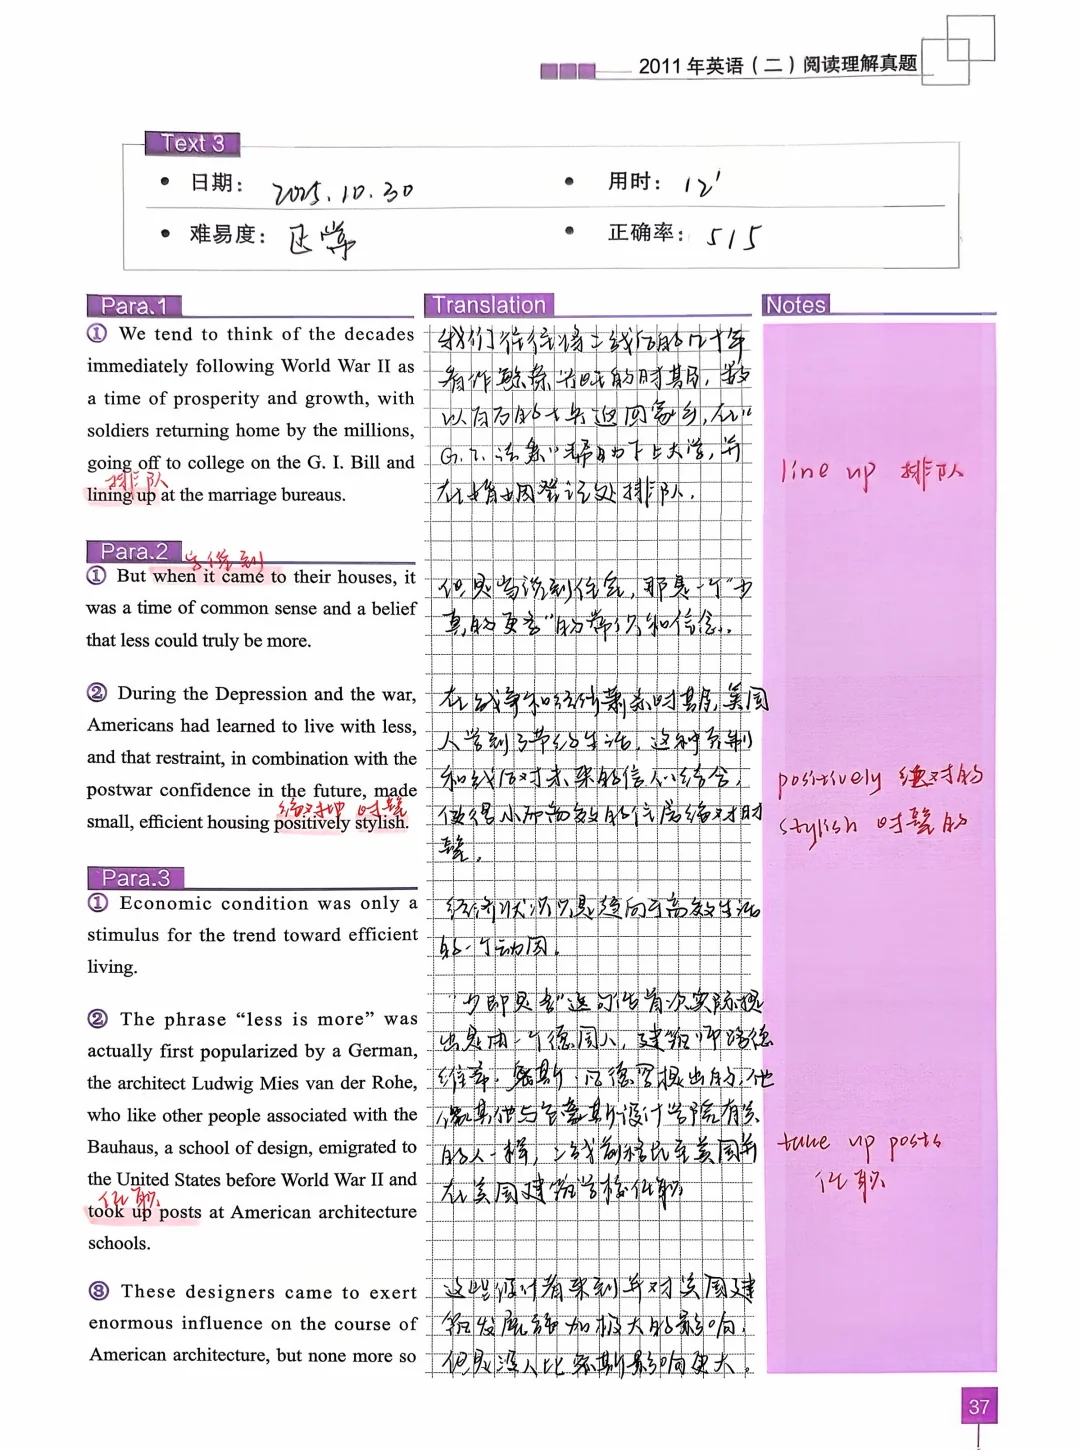 2011年英语（二）阅读理解真题
Text 3
• 日期： 2025.10.30
• 用时： 12'
• 难易度：
• 正确率： 5/5
Para.1
① We tend to think of the decades
immediately following World War II as
a time of prosperity and growth, with
soldiers returning home by the millions,
going off to college on the G. I. Bill and
排队
lining up at the marriage bureaus.
Para.2
当谈到
① But when it came to their houses, it
was a time of common sense and a belief
that less could truly be more.
② During the Depression and the war,
Americans had learned to live with less,
and that restraint, in combination with the
postwar confidence in the future, made
绝对地 时髦
small, efficient housing positively stylish.
Para.3
① Economic condition was only a
stimulus for the trend toward efficient
living.
② The phrase “less is more” was
actually first popularized by a German,
the architect Ludwig Mies van der Rohe,
who like other people associated with the
Bauhaus, a school of design, emigrated to
the United States before World War II and
任职
took up posts at American architecture
schools.
③ These designers came to exert
enormous influence on the course of
American architecture, but none more so
Translation
我们往往将二战后的几十年
看作繁荣兴旺的时期，数
以百万的士兵返回家乡，在“
G.I.法案”帮助下上大学，并
在婚姻登记处排队。
但是当谈到住宅，那是一个“少
真的更多”的常识和信念。
在战争和经济萧条时期，美国
人学到了节约生活，这种克制
和战后对未来的信心结合，
使得小而高效的住房绝对时
髦。
经济状况只是趋向于高效生活
的一个动因。
“少即是多”这句话首次实际提
出是由一个德国人，建筑师路德
维希·密斯·凡德罗提出的，他
像其他与包豪斯设计学院有关
的人一样，二战前移民至美国并
在美国建筑学校任职
这些设计者来到并对美国建
筑发展施加极大的影响，
但是没人比密斯影响更大。
Notes
line up 排队
positively 绝对的
stylish 时髦的
take up posts
任职
37